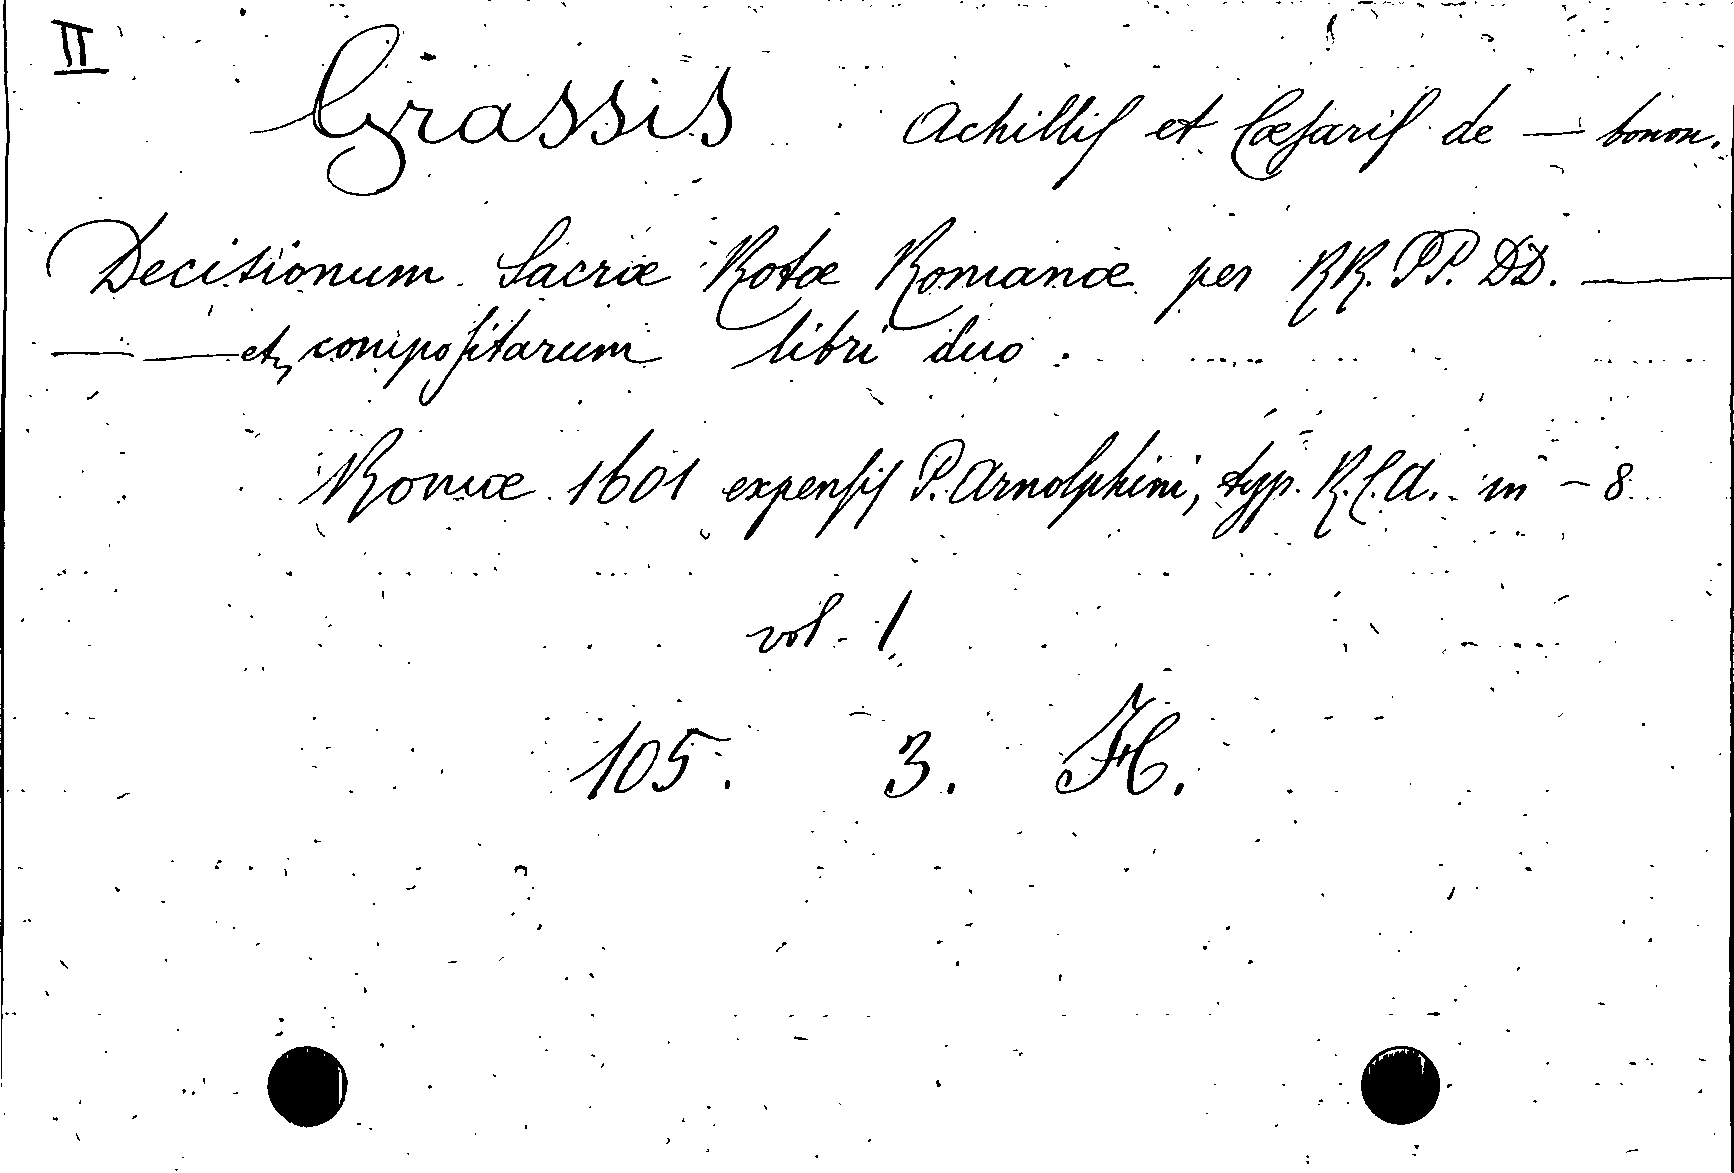 II
Grassis Achillis et Cæsaris de — bonon.
Decisionum Sacræ Rotæ Romanæ per RR. PP. DD. —
— — et, compositarum libri duo.
Romæ 1601 expensis P. Arnolphini, typ. R.C.A. in - 8
vol. 1
105. 3. H.